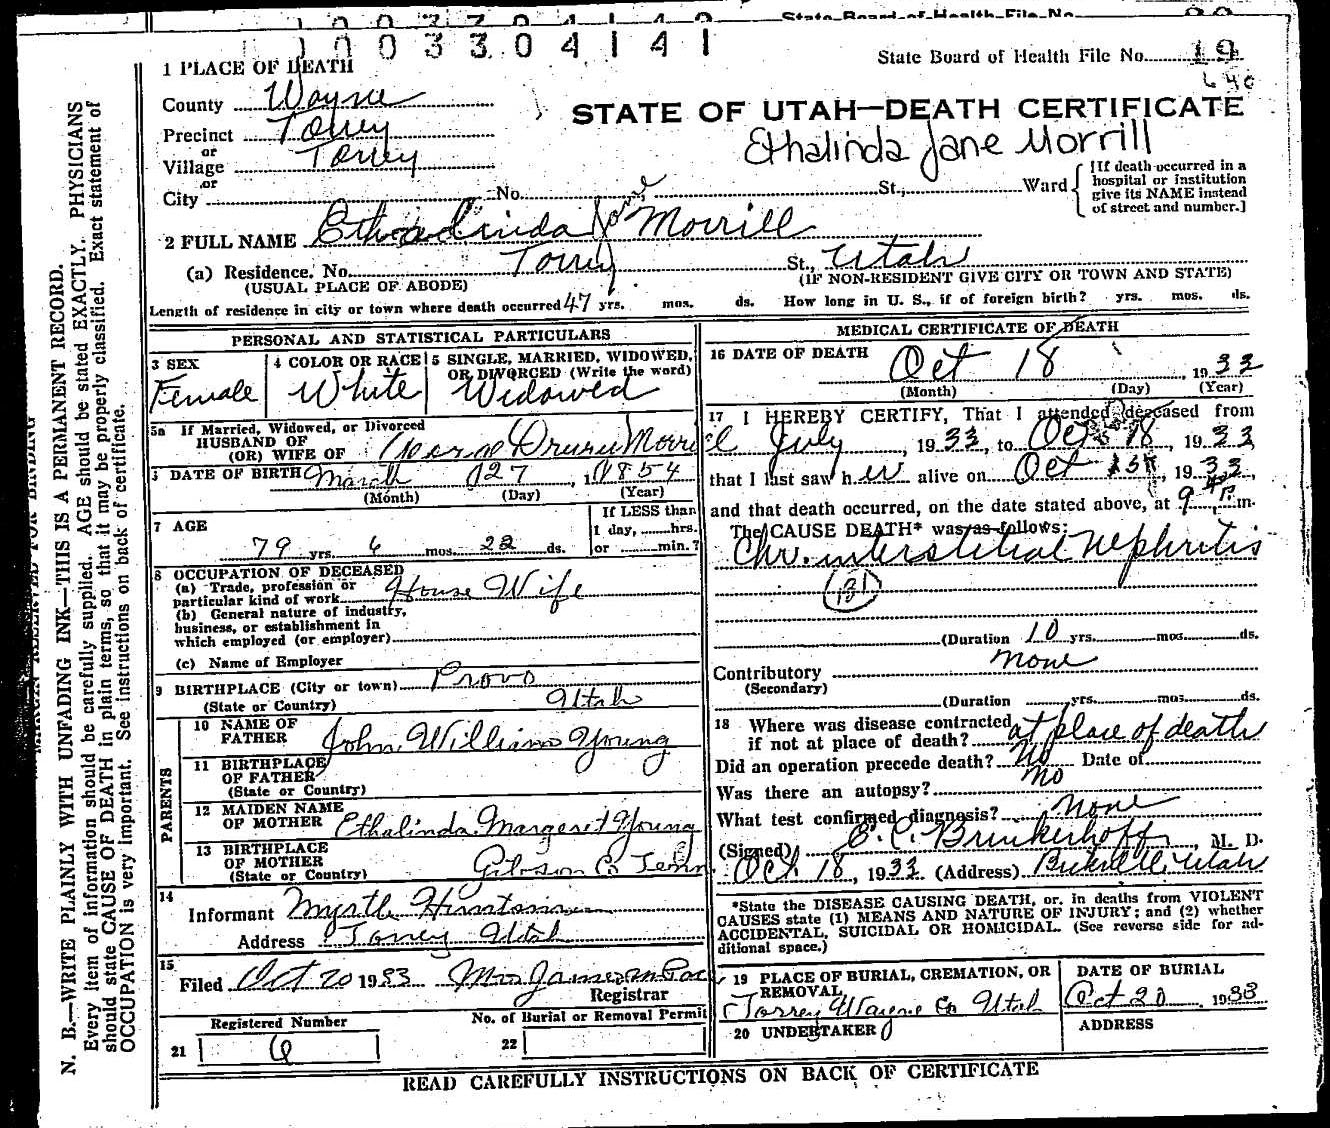 State Board of Health File No.
1003304141
State Board of Health File No. 19
640
1 PLACE OF DEATH
County Wayne
STATE OF UTAH—DEATH CERTIFICATE
Precinct Torrey
or
Village Torrey
Ethalinda Jane Morrill
or
City No. St., Ward
[If death occurred in a hospital or institution give its NAME instead of street and number.]
2 FULL NAME Ethalinda Jane Morrill
(a) Residence. No. Torrey St., Utah
(USUAL PLACE OF ABODE) (IF NON-RESIDENT GIVE CITY OR TOWN AND STATE)
Length of residence in city or town where death occurred 47 yrs. mos. ds. How long in U. S., if of foreign birth? yrs. mos. ds.
PERSONAL AND STATISTICAL PARTICULARS
3 SEX 4 COLOR OR RACE 5 SINGLE, MARRIED, WIDOWED,
OR DIVORCED (Write the word)
Female White Widowed
5a If Married, Widowed, or Divorced
HUSBAND OF
(OR) WIFE OF George Drury Morrill
DATE OF BIRTH March 27, 1854
(Month) (Day) (Year)
7 AGE
If LESS than
1 day, hrs.
79 yrs. 6 mos. 22 ds. or min.?
8 OCCUPATION OF DECEASED
(a) Trade, profession or
particular kind of work House Wife
(b) General nature of industry,
business, or establishment in
which employed (or employer)
(c) Name of Employer
9 BIRTHPLACE (City or town) Provo
(State or Country) Utah
PARENTS
10 NAME OF
FATHER John William Young
11 BIRTHPLACE
OF FATHER
(State or Country)
12 MAIDEN NAME
OF MOTHER Ethalinda Margaret Young
13 BIRTHPLACE
OF MOTHER Gibson Co Tenn
(State or Country)
14
Informant Myrtle
Address Torrey Utah
15
Filed Oct 20 1933 Mrs
Registrar
Registered Number No. of Burial or Removal Permit
21 6 22
MEDICAL CERTIFICATE OF DEATH
16 DATE OF DEATH
Oct 18, 1933
(Month) (Day) (Year)
17 I HEREBY CERTIFY, That I attended deceased from
July, 1933, to Oct 18, 1933
that I last saw her alive on Oct 13, 1933,
and that death occurred, on the date stated above, at 9 P. m.
The CAUSE DEATH* was as follows:
Chr. interstitial Nephritis
131
(Duration 10 yrs. mos. ds.
Contributory none
(Secondary)
(Duration yrs. mos. ds.
18 Where was disease contracted
if not at place of death? at place of death
Did an operation precede death? No Date of
Was there an autopsy? no
What test confirmed diagnosis? None
(Signed) E. C. Brinkerhoff, M. D.
Oct. 18, 1933 (Address) Bicknell, Utah
*State the DISEASE CAUSING DEATH, or, in deaths from VIOLENT
CAUSES state (1) MEANS AND NATURE OF INJURY; and (2) whether
ACCIDENTAL, SUICIDAL OR HOMICIDAL. (See reverse side for ad-
ditional space.)
19 PLACE OF BURIAL, CREMATION, OR
REMOVAL
Torrey Wayne Co Utah
DATE OF BURIAL
Oct 20, 1933
20 UNDERTAKER
ADDRESS
READ CAREFULLY INSTRUCTIONS ON BACK OF CERTIFICATE
MARGIN RESERVED FOR BINDING
N. B.—WRITE PLAINLY WITH UNFADING INK—THIS IS A PERMANENT RECORD.
Every item of information should be carefully supplied. AGE should be stated EXACTLY. PHYSICIANS
should state CAUSE OF DEATH in plain terms, so that it may be properly classified. Exact statement of
OCCUPATION is very important. See instructions on back of certificate.